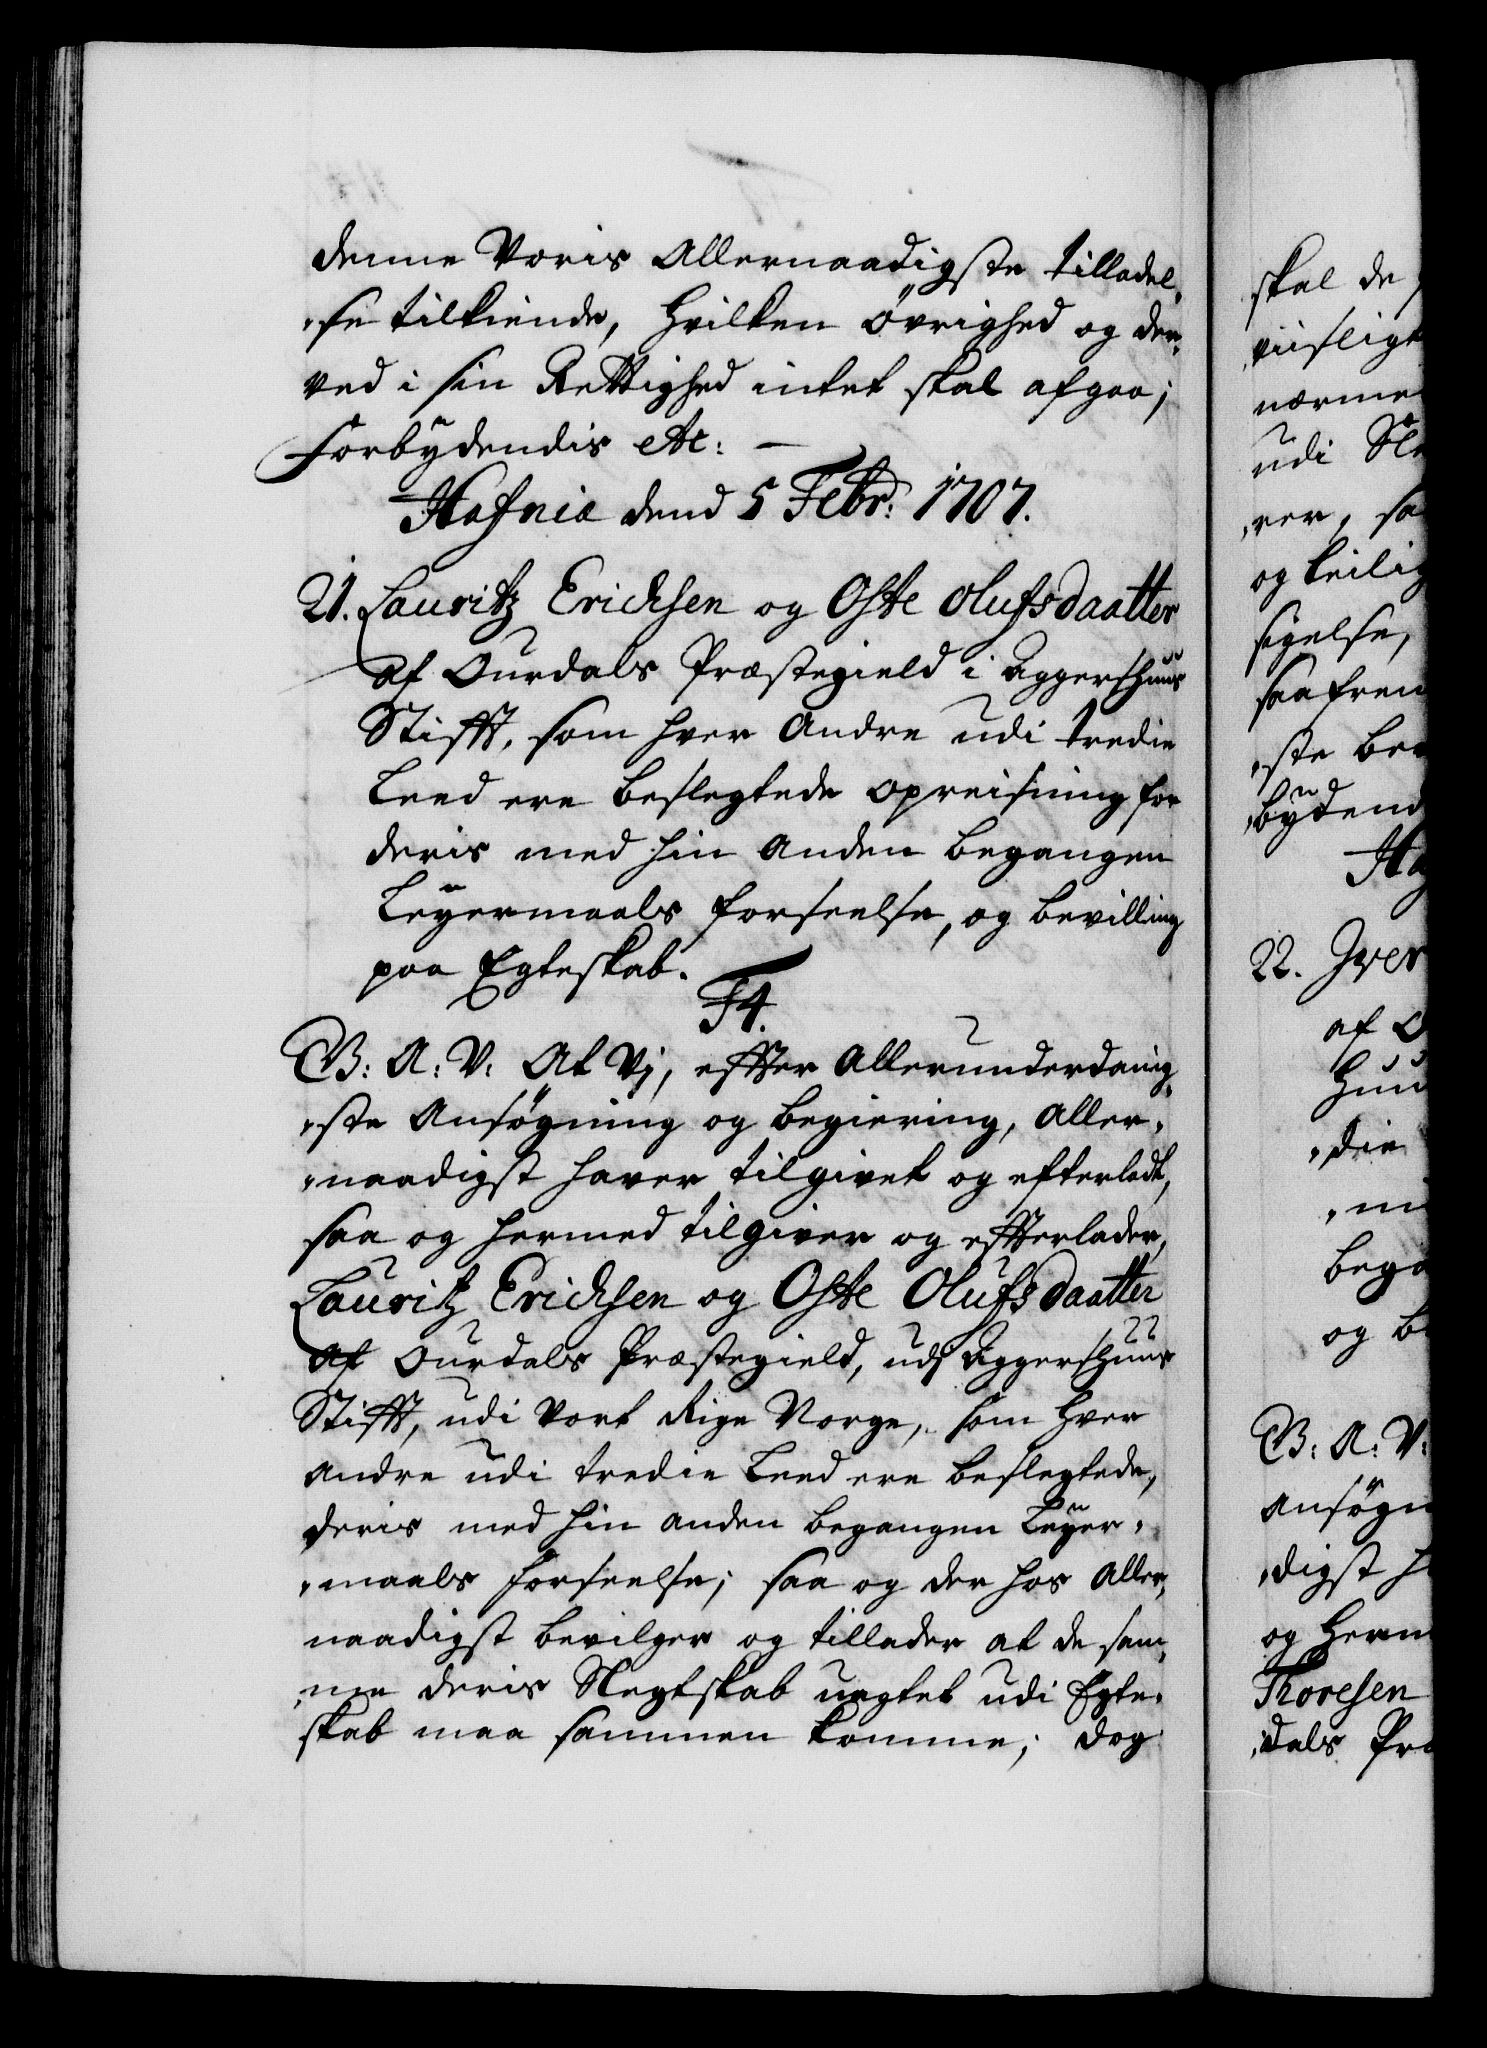 denne Voris Allernaadigste tilladel,
,se tilkiende, hvilken Øvrighed og der,
ved i sin Rettighed intet skal afgaa;
Forbydendis etc: —
Hafnia dend 5 Febr: 1707.
21. Lauritz Erichsen og Oste Olufsdaatter
af Ourdals Præstegield i Aggershuus
Stifft, som hver Andre udi tredie
Leed ere beslegtede opreisning for
deris med hin Anden begangen
Leyermaals forseelse, og bevilling
paa Egteskab.
F4.
G: A: V: At Vj, effter Allerunderdanig,
,ste Ansøgning og begiering, Aller,
,naadigst haver tilgivet og efterladt,
saa og hermed tilgiver og effterlader,
Lauritz Erichsen og Oste Olufsdaatter
af Ourdals Præstegield, udj Aggershuus
Stifft, udi Vort Rige Norge, som hver
andre udi tredie Leed ere beslegtede,
deris med hin anden begangen Leyer,
,maals forseelse; saa og der hos Aller,
naadigst bevilger og tillader at de sam,
,me deris Slegtskab uagtet udi Egte,
skab maa sammen komme; dog
skal de
viisligt
nærme
udi
,ver, sa
og leilig
sigelse,
saafrem
,ste bev
,bydend
Ha
22. Iver
af O
huu
,die
,m
bega
og b
G: A: V:
Ansøgn
,digst h
og herm
Thoresen
,dals Præ